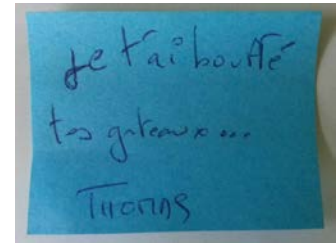 Je t'ai bouffé
tes gateaux...
THOMAS